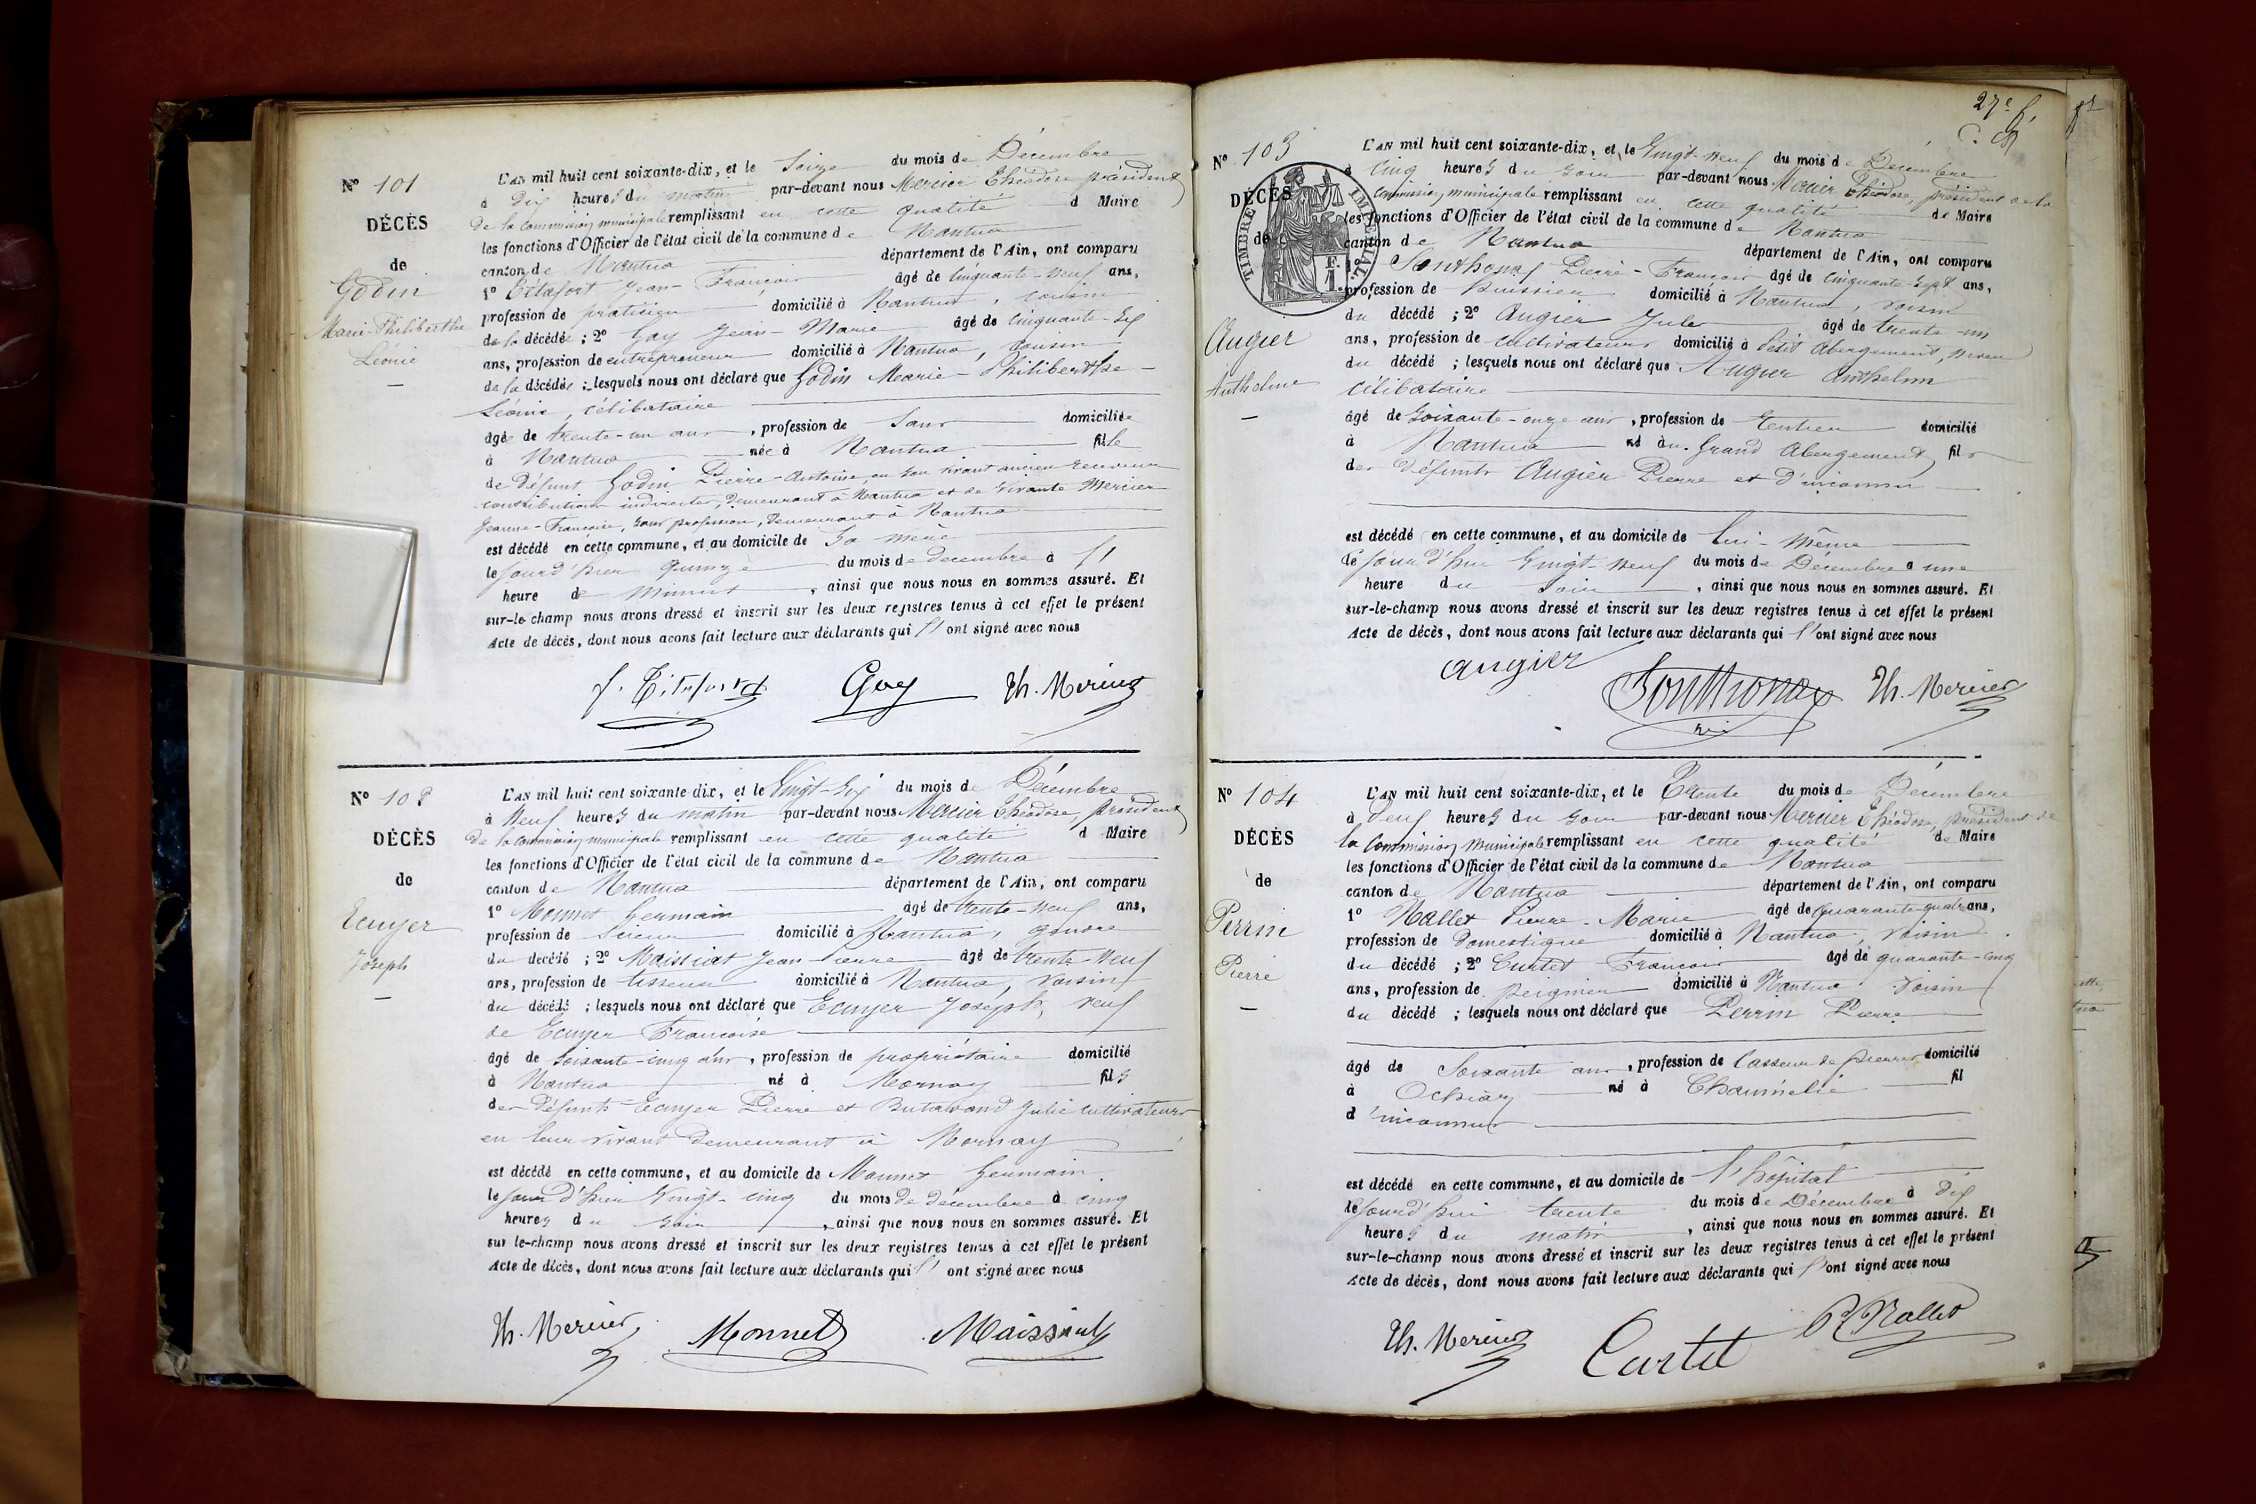 N° 101
DÉCÈS
de
Godin
Marie-Philiberthe
Léonie
L'AN mil huit cent soixante-dix, et le Seize du mois de Décembre
à dix heures du matin par-devant nous Mercier Théodore président
de la commission municipale remplissant en cette qualité d Maire
les fonctions d'Officier de l'état civil de la commune de Nantua
canton de Nantua département de l'Ain, ont comparu
1° Jean-François âgé de cinquante-neuf ans,
profession de praticien domicilié à Nantua, cousin
de la décédée ; 2° Goy Jean-Marie âgé de cinquante-six
ans, profession de entrepreneur domicilié à Nantua, cousin
de la décédée ; lesquels nous ont déclaré que Godin Marie-Philiberthe-
Léonie, célibataire
âgée de trente-un ans, profession de Sans domiciliée
à Nantua née à Nantua fille
de défunt Godin Pierre-Antoine, en son vivant ancien receveur
contributions indirectes, demeurant à Nantua et de vivante Mercier
Jeanne-Françoise, sans profession, demeurant à Nantua
est décédé en cette commune, et au domicile de sa mère
le jour d'hier quinze du mois de décembre à 11
heure de minuit, ainsi que nous nous en sommes assuré. Et
sur-le-champ nous avons dressé et inscrit sur les deux registres tenus à cet effet le présent
Acte de décès, dont nous avons fait lecture aux déclarants qui l' ont signé avec nous
Goy Th. Mercier
N° 102
DÉCÈS
de
Ecuyer
Joseph
L'AN mil huit cent soixante-dix, et le Vingt-Six du mois de Décembre
à Neuf heures du matin par-devant nous Mercier Théodore, président
de la commission municipale remplissant en cette qualité d Maire
les fonctions d'Officier de l'état civil de la commune de Nantua
canton de Nantua département de l'Ain, ont comparu
1° Monnet Germain âgé de trente-neuf ans,
profession de Scieur domicilié à Nantua, gendre
du décédé ; 2° Maissiat Jean-Pierre âgé de trente-neuf
ans, profession de tisseur domicilié à Nantua, voisin
du décédé ; lesquels nous ont déclaré que Ecuyer Joseph, veuf
de Ecuyer Françoise
âgé de soixante-cinq ans, profession de propriétaire domicilié
à Nantua né à Mornay fils
des défunts Ecuyer Pierre et Butavand Julie cultivateurs
en leur vivant demeurant à Mornay
est décédé en cette commune, et au domicile de Monnet Germain
le jour d'hier Vingt-cinq du mois de décembre à cinq
heures du soir, ainsi que nous nous en sommes assuré. Et
sur le-champ nous avons dressé et inscrit sur les deux registres tenus à cet effet le présent
Acte de décès, dont nous avons fait lecture aux déclarants qui l' ont signé avec nous
Th. Mercier Monnet Maissiat
27e f.
N° 103
DÉCÈS
de
TIMBRE IMPÉRIAL
1 F.
Augier
Anthelme
L'AN mil huit cent soixante-dix, et le Vingt-neuf du mois de Décembre
à Cinq heures du soir par-devant nous Mercier Théodore, président de la
Commission municipale remplissant en cette qualité de Maire
les fonctions d'Officier de l'état civil de la commune de Nantua
canton de Nantua département de l'Ain, ont comparu
1° Sonthonax Pierre-François âgé de cinquante-sept ans,
profession de huissier domicilié à Nantua, voisin
du décédé ; 2° Augier Jules âgé de trente-un
ans, profession de cultivateur domicilié à Petit Abergement, neveu
du décédé ; lesquels nous ont déclaré que Augier Anthelme
célibataire
âgé de soixante-onze ans, profession de Rentier domicilié
à Nantua né au Grand Abergement, fils
des défunts Augier Pierre et d'inconnu
est décédé en cette commune, et au domicile de lui-même
le jour d'hui Vingt-neuf du mois de Décembre à une
heure du soir, ainsi que nous nous en sommes assuré. Et
sur-le-champ nous avons dressé et inscrit sur les deux registres tenus à cet effet le présent
Acte de décès, dont nous avons fait lecture aux déclarants qui l'ont signé avec nous
Augier Sonthonax Th. Mercier
N° 104
DÉCÈS
de
Perrin
Pierre
L'AN mil huit cent soixante-dix, et le Trente du mois de Décembre
à Deux heures du soir par-devant nous Mercier Théodore, président de
la Commission municipale remplissant en cette qualité de Maire
les fonctions d'Officier de l'état civil de la commune de Nantua
canton de Nantua département de l'Ain, ont comparu
1° Nallet Pierre-Marie âgé de quarante-quatre ans,
profession de Domestique domicilié à Nantua, voisin
du décédé ; 2° Curtet François âgé de quarante-cinq
ans, profession de peigneur domicilié à Nantua voisin
du décédé ; lesquels nous ont déclaré que Perrin Pierre
âgé de Soixante ans, profession de Casseur de pierres domicilié
à Ochiaz né à fil
d'inconnus
est décédé en cette commune, et au domicile de l'hôpital
le jour d'hui trente du mois de Décembre à dix
heures du matin, ainsi que nous nous en sommes assuré. Et
sur-le-champ nous avons dressé et inscrit sur les deux registres tenus à cet effet le présent
Acte de décès, dont nous avons fait lecture aux déclarants qui l'ont signé avec nous
Th. Mercier Curtet P. Nallet